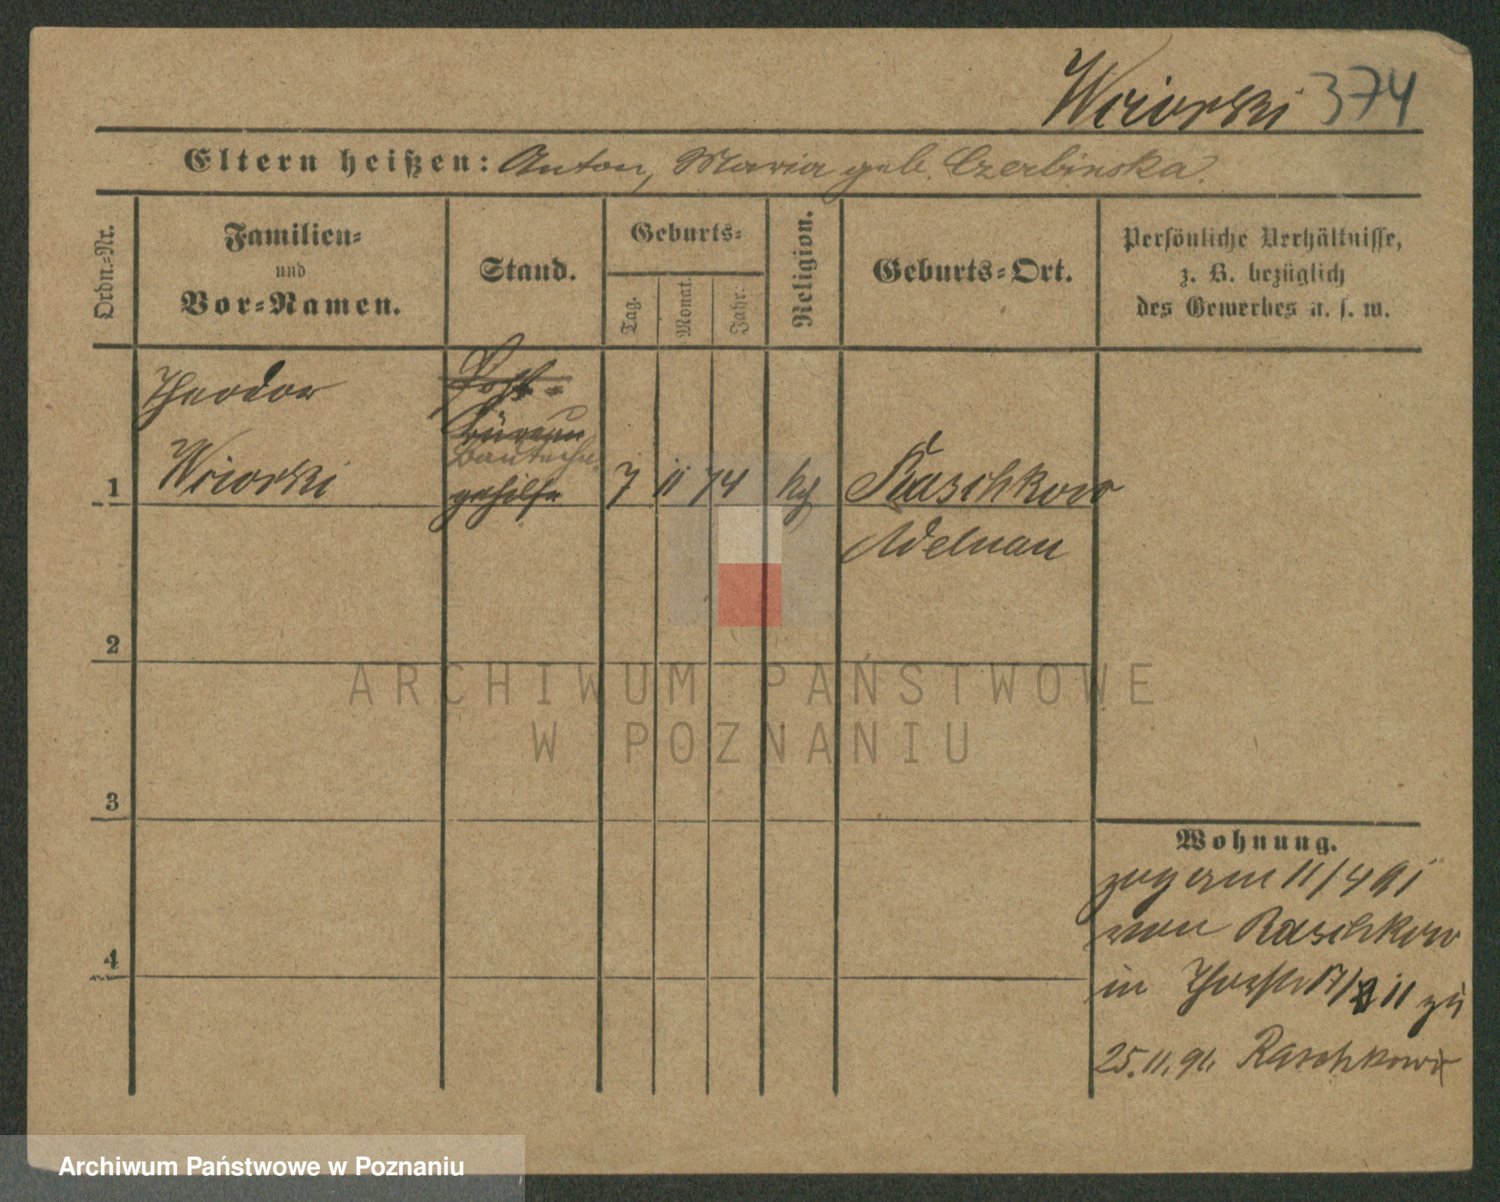 Wciorski 374
Eltern heißen: Anton, Maria geb. Czerbinska.
Ordn.-Nr.
Familien-
und
Vor-Namen.
Stand.
Geburts-
Tag.
Monat.
Jahr.
Religion.
Geburts-Ort.
Persönliche Verhältnisse,
z. B. bezüglich
des Gewerbes u. s. w.
Theodor
Post-
büreau
gehilfe
1 Wciorski 7 11 74 kg Raschkow
Adelnau
2
ARCHIWUM PAŃSTWOWE
W POZNANIU
3
Wohnung.
zog am 11/4 91
von Raschkow
in 17/ 11 zu
4
25.11.91. Raschkow
Archiwum Państwowe w Poznaniu